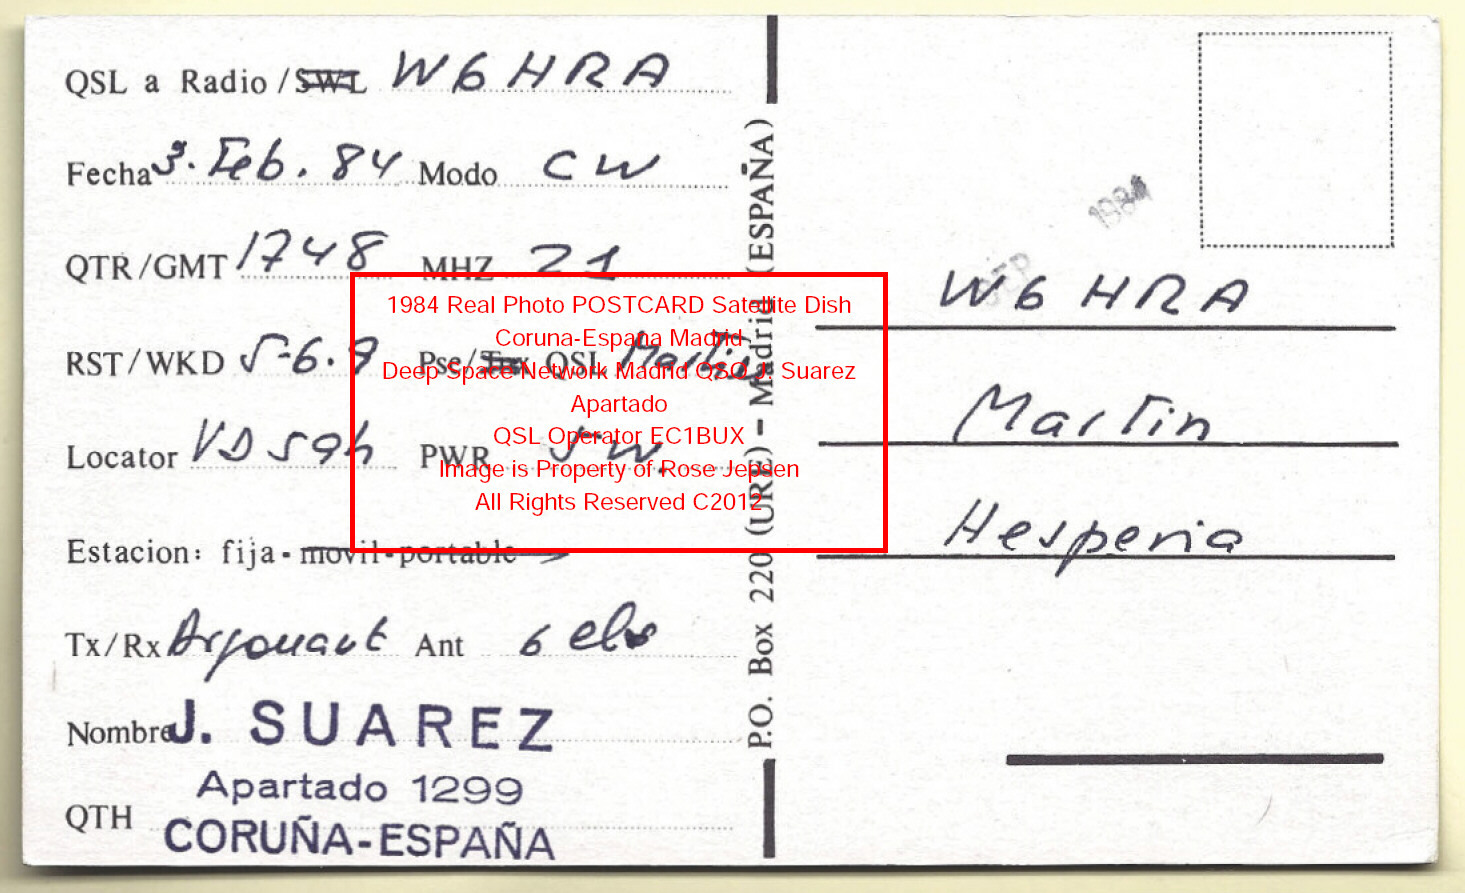 QSL a Radio / SWL W6HRA
Fecha 3. Feb. 84 Modo CW
QTR/GMT 1748 MHZ 21
RST/WKD 5-6.9 Pse/Tnx QSL Martin
Locator VD59h PWR 5 W.
Estacion: fija - movil - portable
Tx/Rx Argonaut Ant 6 els
Nombre J. SUAREZ
Apartado 1299
QTH CORUÑA-ESPAÑA
P.O. Box 220 (URE) - Madrid (ESPAÑA)
1984
SEP
W6HRA
Martin
Hesperia
1984 Real Photo POSTCARD Satellite Dish
Coruna-Espana Madrid
Deep Space Network Madrid QSO J. Suarez
Apartado
QSL Operator EC1BUX
Image is Property of Rose Jepsen
All Rights Reserved C2012